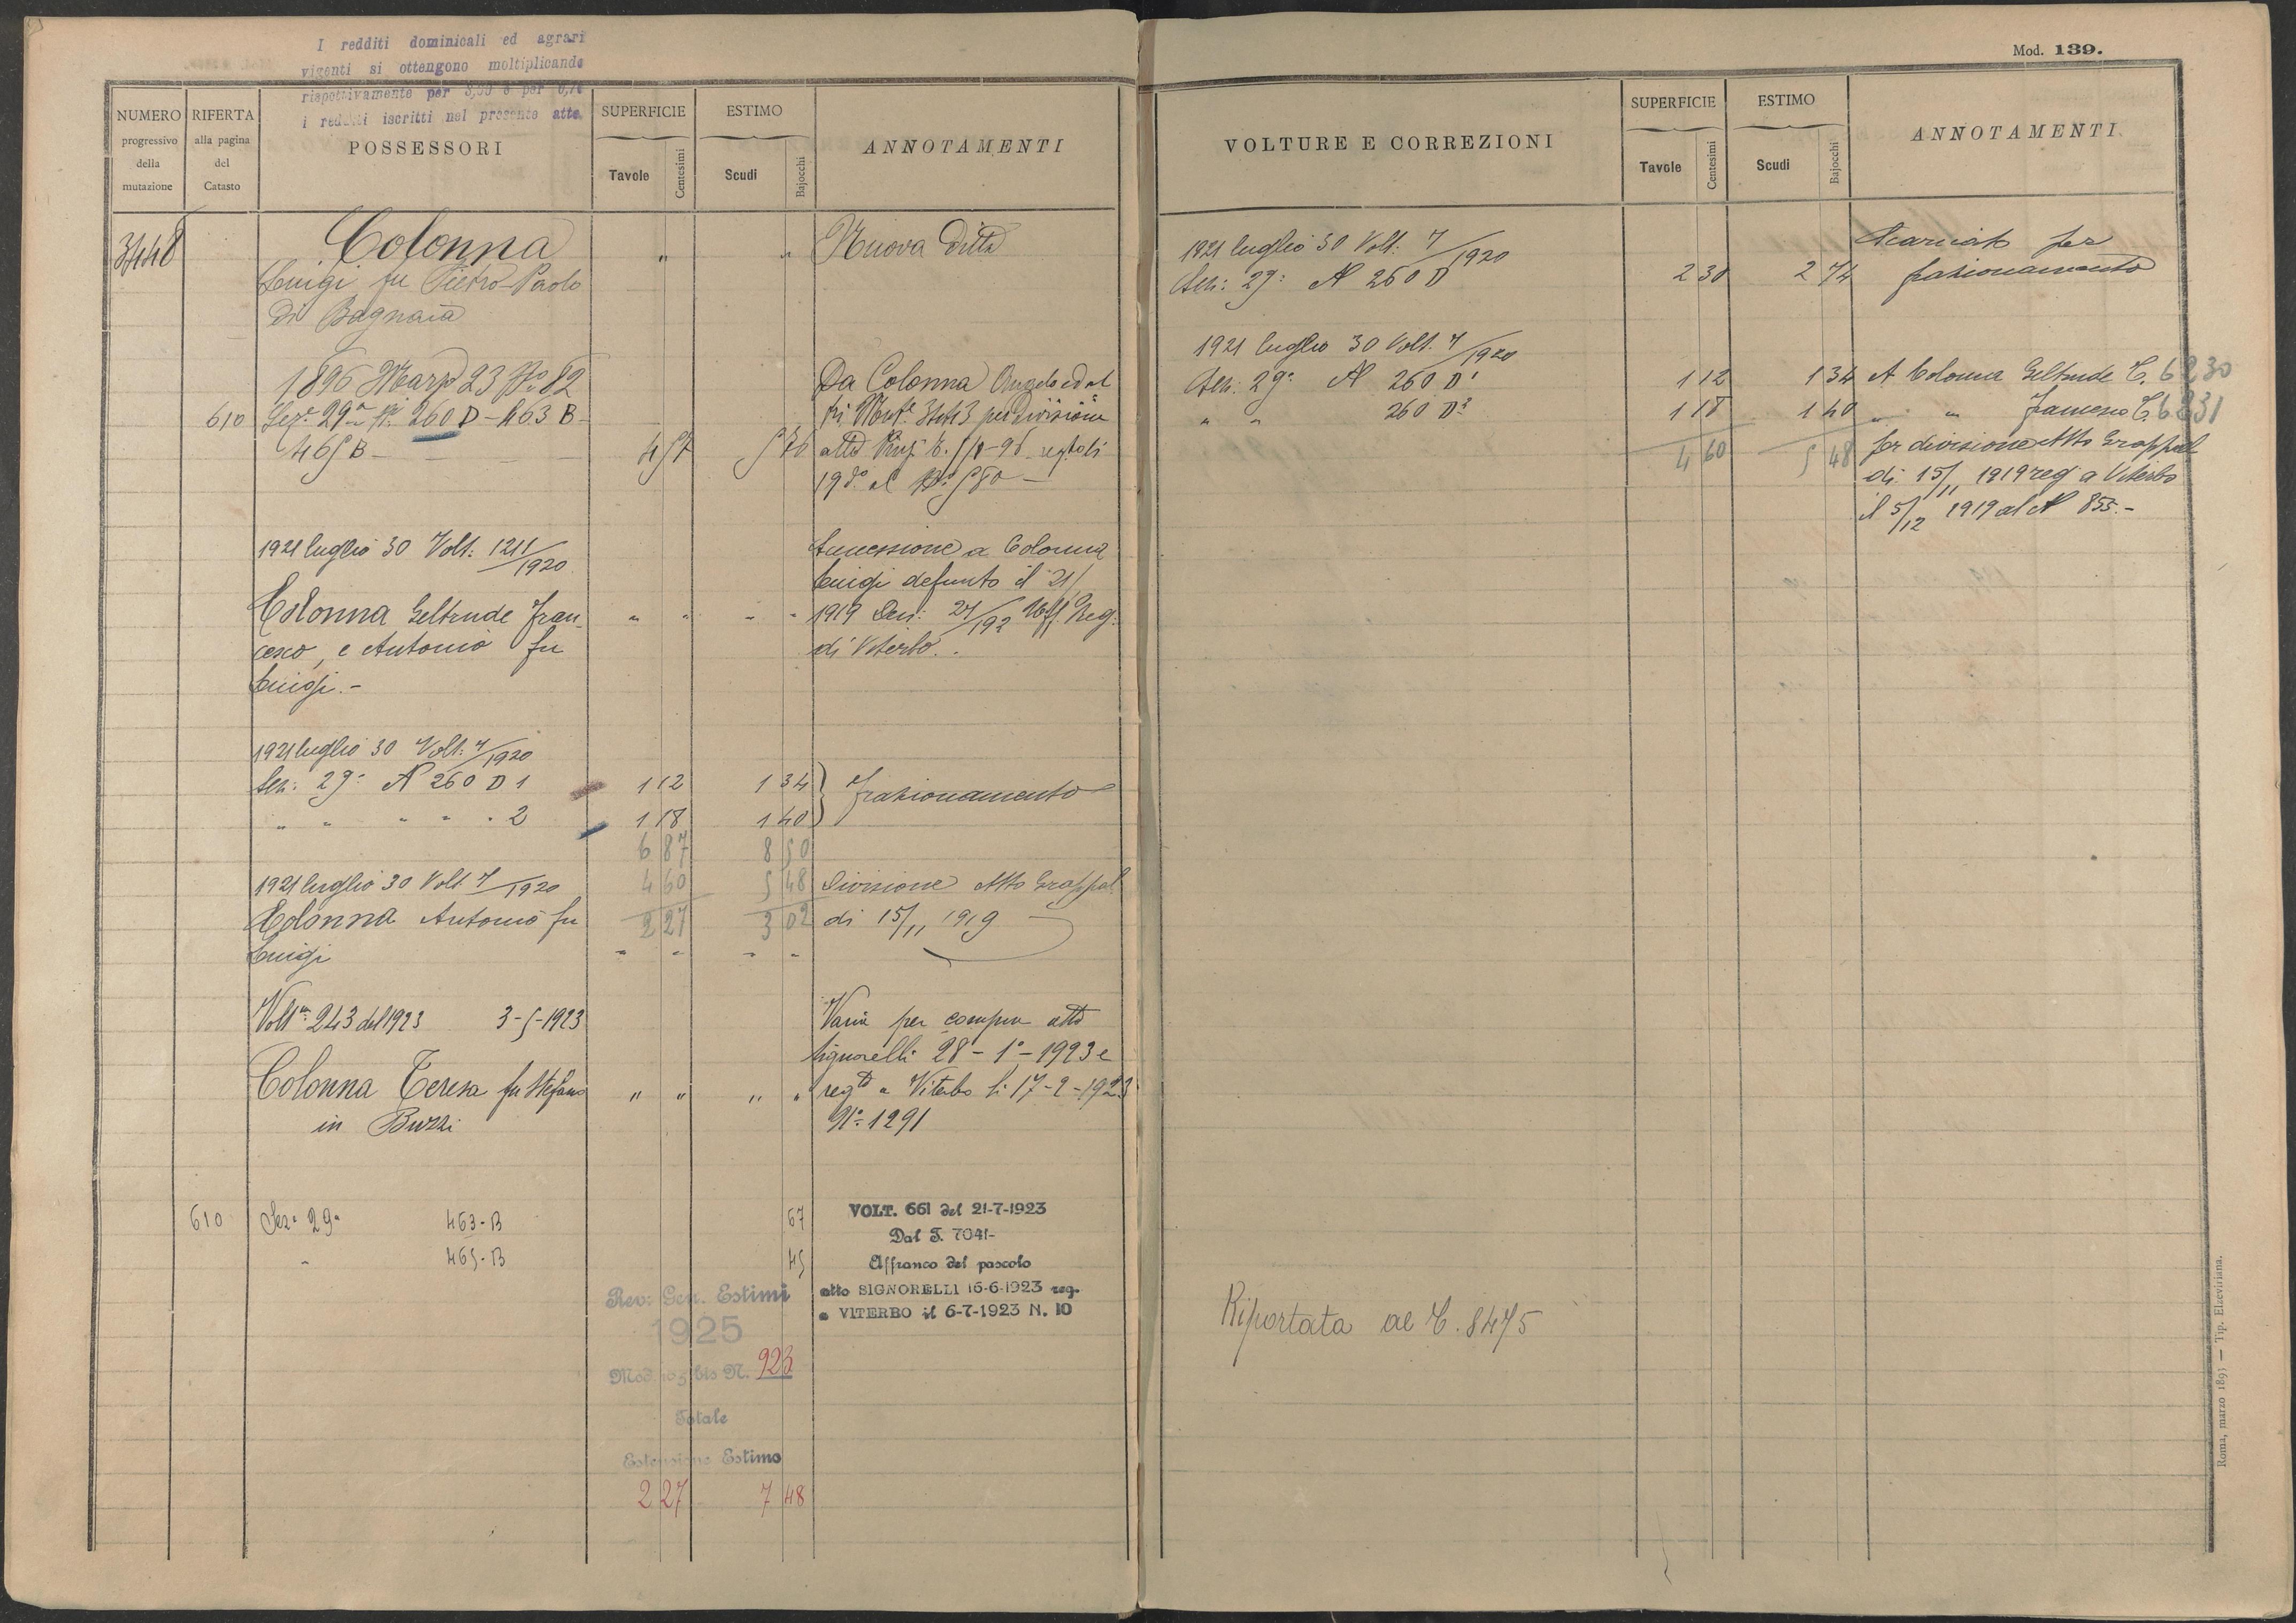 I redditi dominicali ed agrari
vigenti si ottengono moltiplicando
rispettivamente per 3,30 e per 0,70
i redditi iscritti nel presente atto.
NUMERO progressivo della mutazione
RIFERTA alla pagina del Catasto
POSSESSORI
SUPERFICIE Tavole Centesimi
ESTIMO Scudi Bajocchi
ANNOTAMENTI
3448 Colonna " " Nuova Ditta
Luigi fu Pietro-Paolo
di Bagnaia
1896 Marzo 23 No 82 Da Colonna Angelo ed al
610 Sez.e 29a No 260 D - 463 B - tri 3443 per divisione
465 B - 4 57 5 76 atto 96
19 do al No 580 -
1921 luglio 30 Volt: 1211/1920 Successione a Colonna
Luigi defunto il 21/
Colonna Geltrude Fran- " " " " 1919 Den: 27/192 Uff. Reg.
cesco, e Antonio fu di Viterbo.
Luigi.-
1921 luglio 30 Volt: 7/1920
Sez: 29a N 260 D 1 1 12 1 34 frazionamento
" " " " " 2 1 18 1 40
6 87 8 50
1921 luglio 30 Volt. 7/1920 4 60 5 48 Divisione Atto Grappol.
Colonna Antonio fu 2 27 3 02 di 15/11 1919
Luigi " " " "
Volt.a 243 del 1923 3-5-1923 Varia per compra atto
Signorelli 28-1°-1923 e
Colonna Teresa fu Stefano " " " " regto a Viterbo li 17-2-1923
in Buzzi No 1291
610 Sez.a 29a 463-B 67 VOLT. 661 del 21-7-1923
Dal T. 7041-
" 465-B 45 Affranco del pascolo
atto SIGNORELLI 16-6-1923 reg.
a VITERBO il 6-7-1923 N. 10
Rev: Gen. Estimi
1925
Mod. 105 bis N. 923
Totale
Estensione Estimo
2 27 7 48
Mod. 139.
VOLTURE E CORREZIONI
SUPERFICIE Tavole Centesimi
ESTIMO Scudi Bajocchi
ANNOTAMENTI
1921 luglio 30 Volt: 7/1920 Scaricato per
Sez: 29a N 260 D 2 30 2 74 frazionamento
1921 luglio 30 Volt. 7/1920
Sez: 29a N 260 D1 1 12 1 34 A Colonna Geltrude T. 6230
" " 260 D2 1 18 1 40 " " Francesco T. 6231
4 60 5 48 per divisione Atto Grappol
di 15/11 1919 reg a Viterbo
il 5/12 1919 al N 855.-
Riportata al T. 8475
Roma, marzo 1895 — Tip. Elzeviriana.